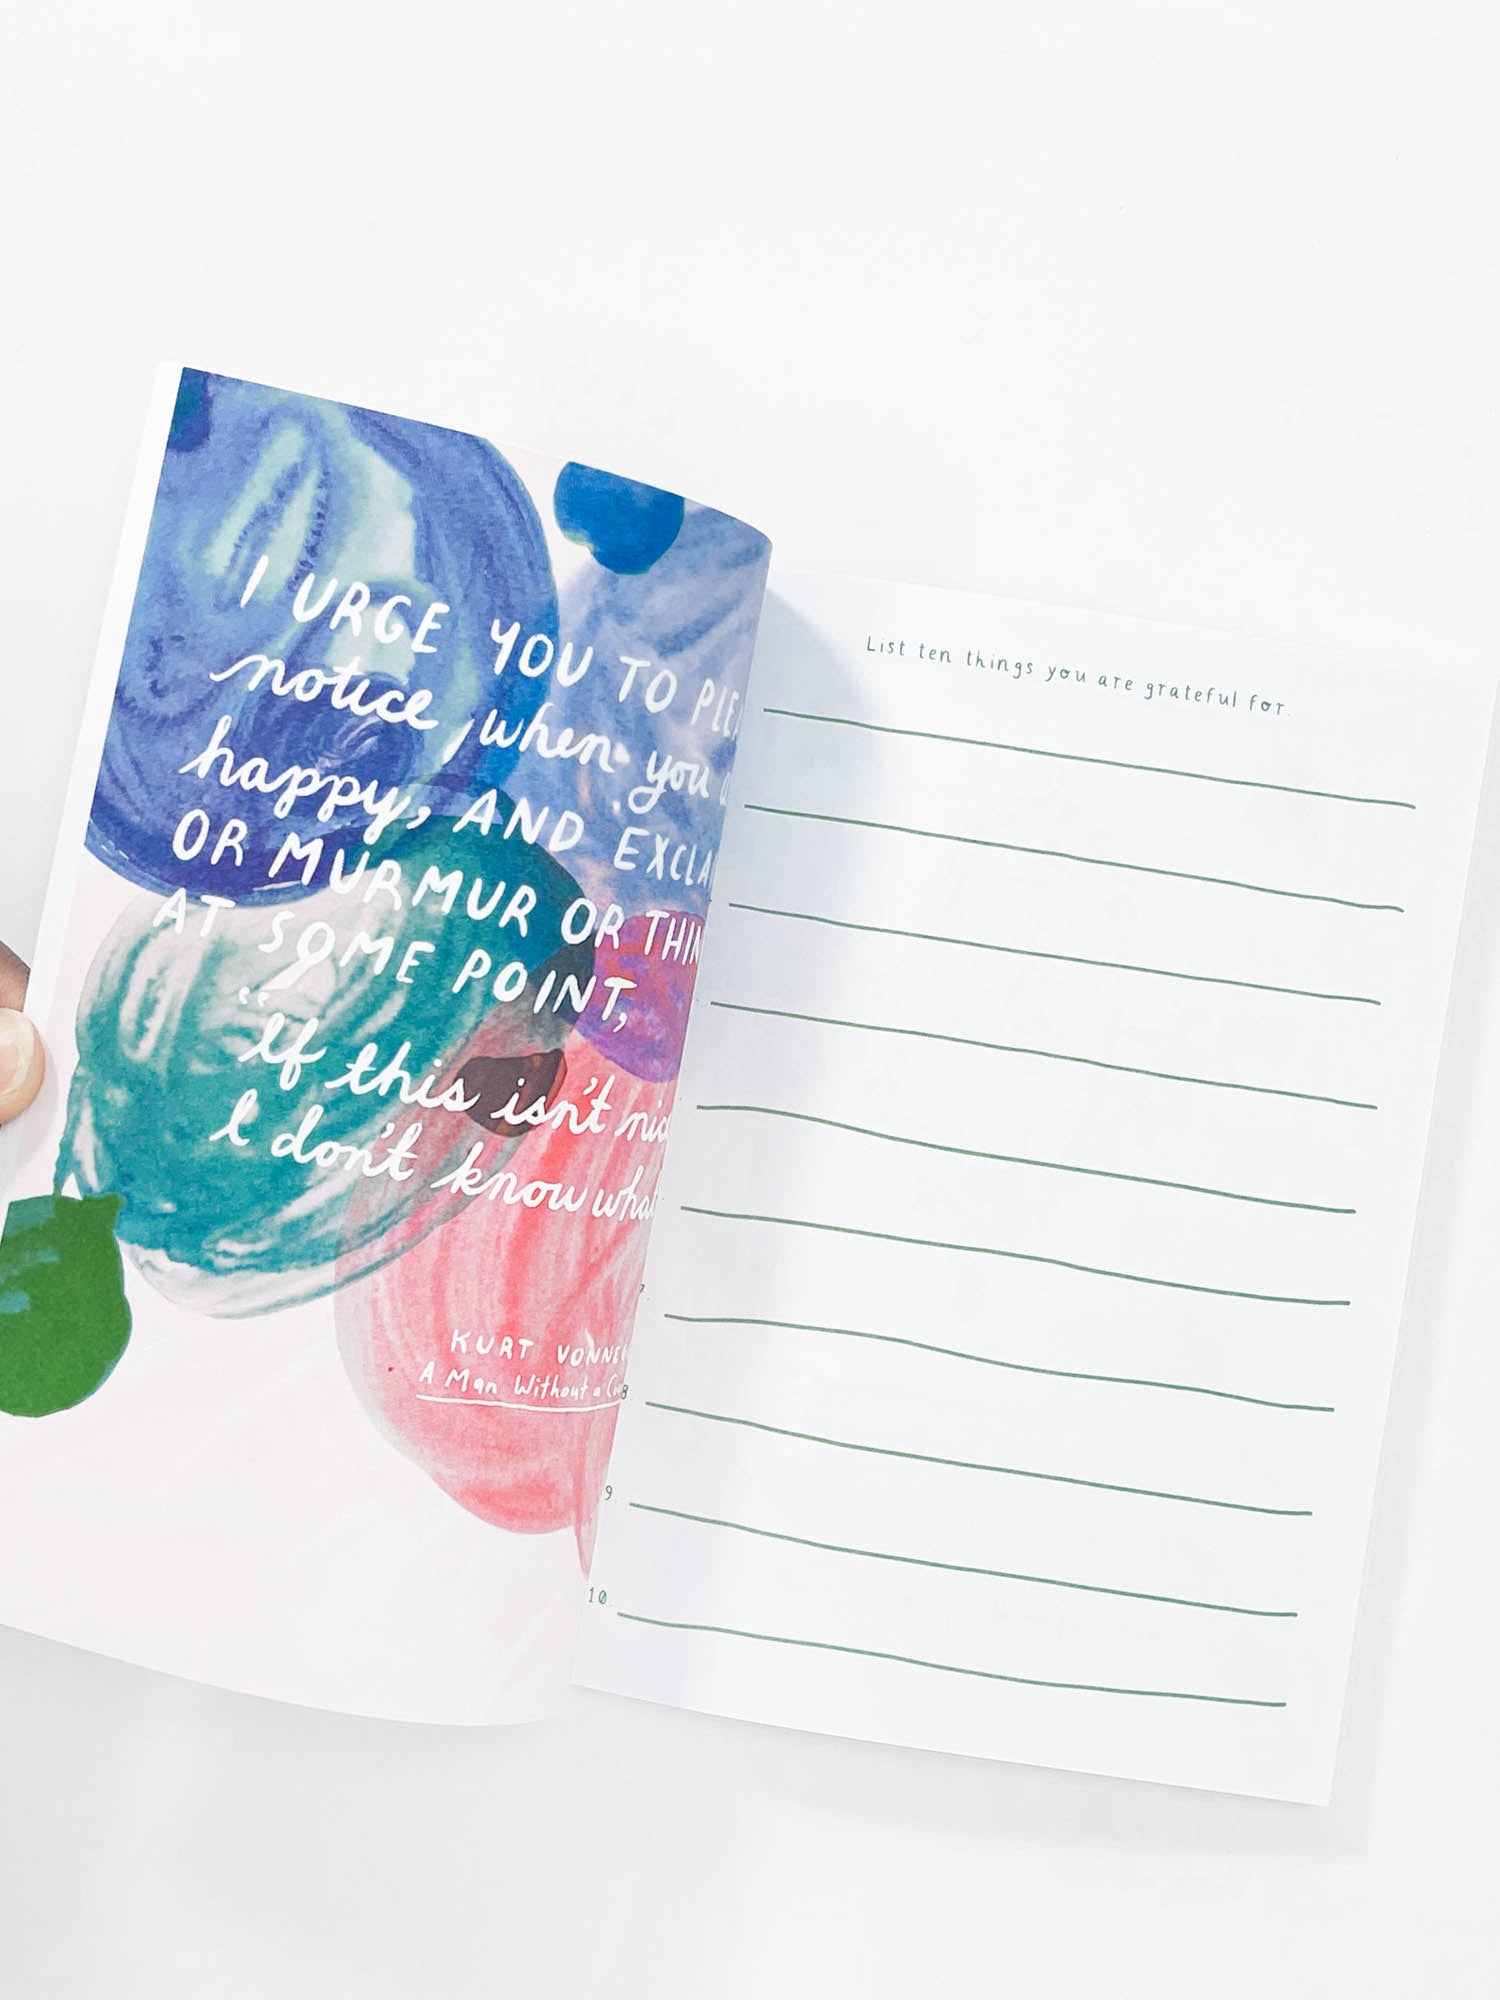 I URGE YOU TO
notice when you
happy, AND
OR MURMUR OR
AT SOME POINT,
"If this isn't
I don't know
KURT
A Man Without a
List ten things you are grateful for.
7.
8.
9.
10.